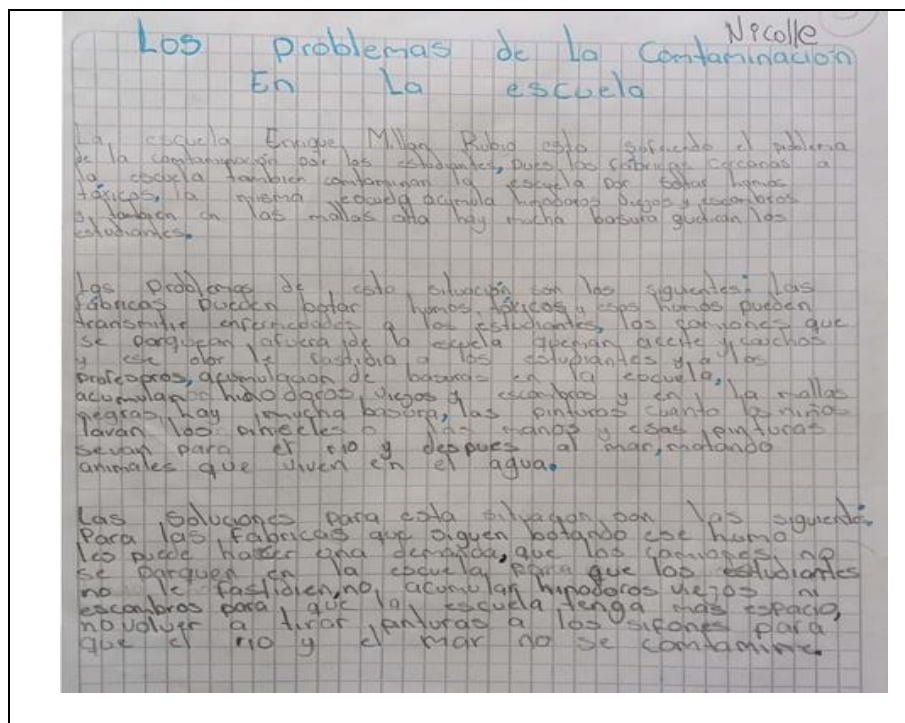 Nicolle
Los problemas de la contaminación
En La escuela
La escuela Enrique Millan Rubio esta sufriendo el problema
de la contaminación por los estudiantes, pues las fabricas cercanas a
la escuela tambien contaminan la escuela por botar humos
tóxicos, la misma escuela acumula viejos y escombros
tambien en las mallas hay mucha basura los
estudiantes.
Los problemas de esta situación son los siguentes: Las
fábricas pueden botar humos tóxicos y esos humos pueden
transmitir enfermedades a los estudiantes, los camiones que
se parquean afuera de la escuela queman aceite y cauchos
y ese olor le fastidia a los estudiantes y a los
profesores, acumulación de basuras en la escuela,
acumulan viejos y escombros y en la mallas
negras hay mucha basura, las pinturas cuanto los niños
lavan los pinceles o las manos y esas pinturas
sevan para el rio y despues al mar, matando
animales que viven en el agua.
Las soluciones para esta situacion son las siguente.
Para las fabricas que siguen botando ese humo
les puede hacer una demanda, que los camiones no
se parquen en la escuela para que los estudiantes
no le fastidien, no acumular hinodoros viejos ni
escombros para que la escuela tenga más espacio,
no volver a tirar pinturas a los sifones para
que el rio y el mar no se contamine.